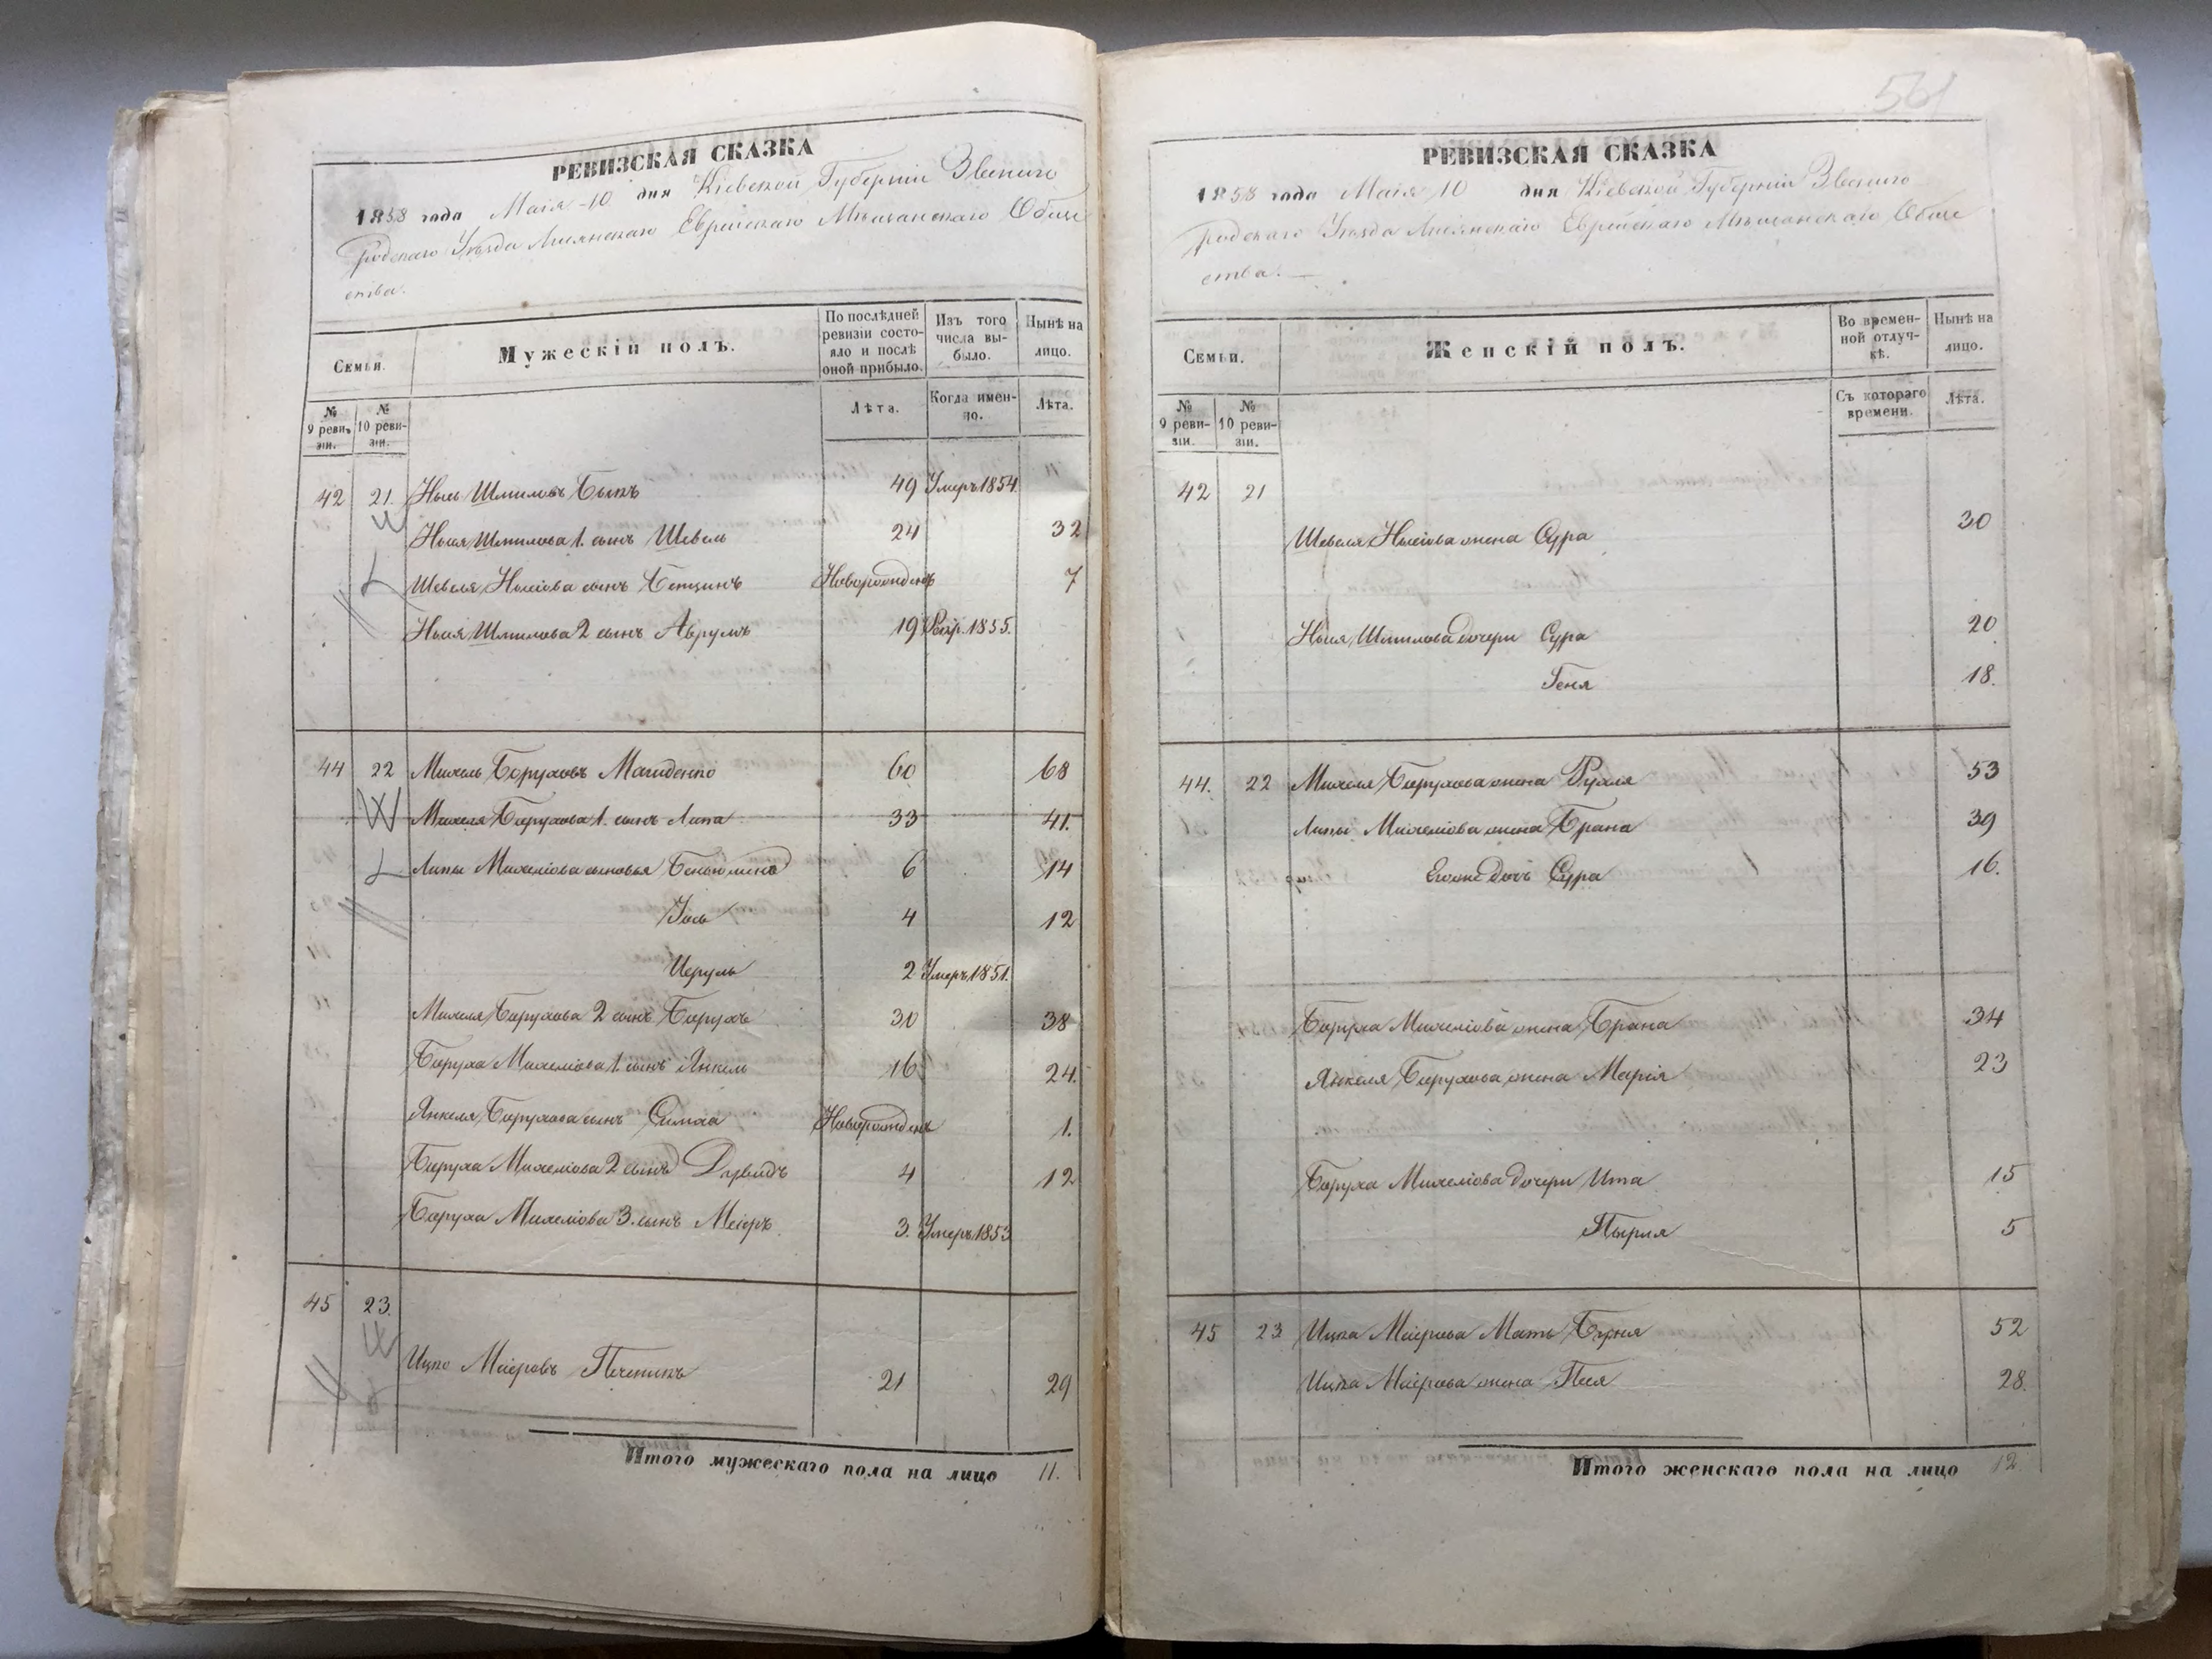 561
РЕВИЗСКАЯ СКАЗКА
1858 года Маія 10 дня Кіевской Губерніи Звениго
родскаго Уѣзда Лисянскаго Еврейскаго Мѣщанскаго Обще
ства.
Семьи.
Мужескій полъ.
По послѣдней ревизіи состояло и послѣ оной прибыло.
Изъ того числа выбыло.
Нынѣ на лицо.
№ 9 ревизіи.
№ 10 ревизіи.
Лѣта.
Когда именно.
Лѣта.
42 21. Шмиловъ 49 Умеръ 1854.
Шмилова 1. сынъ Шевель 24 32
Шевеля сынъ Бенціонъ Новорожденъ 7
Шмилова 2 сынъ Аврумъ 19 1855.
44 22 Михель Боруховъ 60 68
Михеля Борухова 1. сынъ Липа 33 41.
Липы Михеліова сыновья Беньюминъ 6 14
Іось 4 12
2 Умеръ 1851.
Михеля Борухова 2 сынъ Борухъ 30 38
Боруха Михеліова 1. сынъ Янкель 16 24.
Янкеля Борухова сынъ Симха Новорожденъ 1.
Боруха Михеліова 2 сынъ Дувидъ 4 12
Боруха Михеліова 3. сынъ Меіеръ 3. Умеръ 1853
45 23.
Ицко Меіеровъ Печеникъ 21 29
Итого мужескаго пола на лицо 11.
РЕВИЗСКАЯ СКАЗКА
1858 года Маія 10 дня Кіевской Губерніи Звениго
родскаго Уѣзда Лисянскаго Еврейскаго Мѣщанскаго Обще
ства.
Семьи.
Женскій полъ.
Во временной отлучкѣ.
Нынѣ на лицо.
№ 9 ревизіи.
№ 10 ревизіи.
Съ котораго времени.
Лѣта.
42 21
Шевеля жена Сура 30
Шмилова дочери Сура 20
Геня 18.
44. 22 Михеля Борухова жена Рухля 53
Липы Михеліова жена Брана 39
Егоже дочь Сура 16.
Боруха Михеліова жена Брана 34
Янкеля Борухова жена Марія 23
Боруха Михеліова дочери Ита 15
Пырля 5
45 23 Ицка Меіерова Мать Буня 52
Ицка Меіерова жена Песя 28.
Итого женскаго пола на лицо 12.